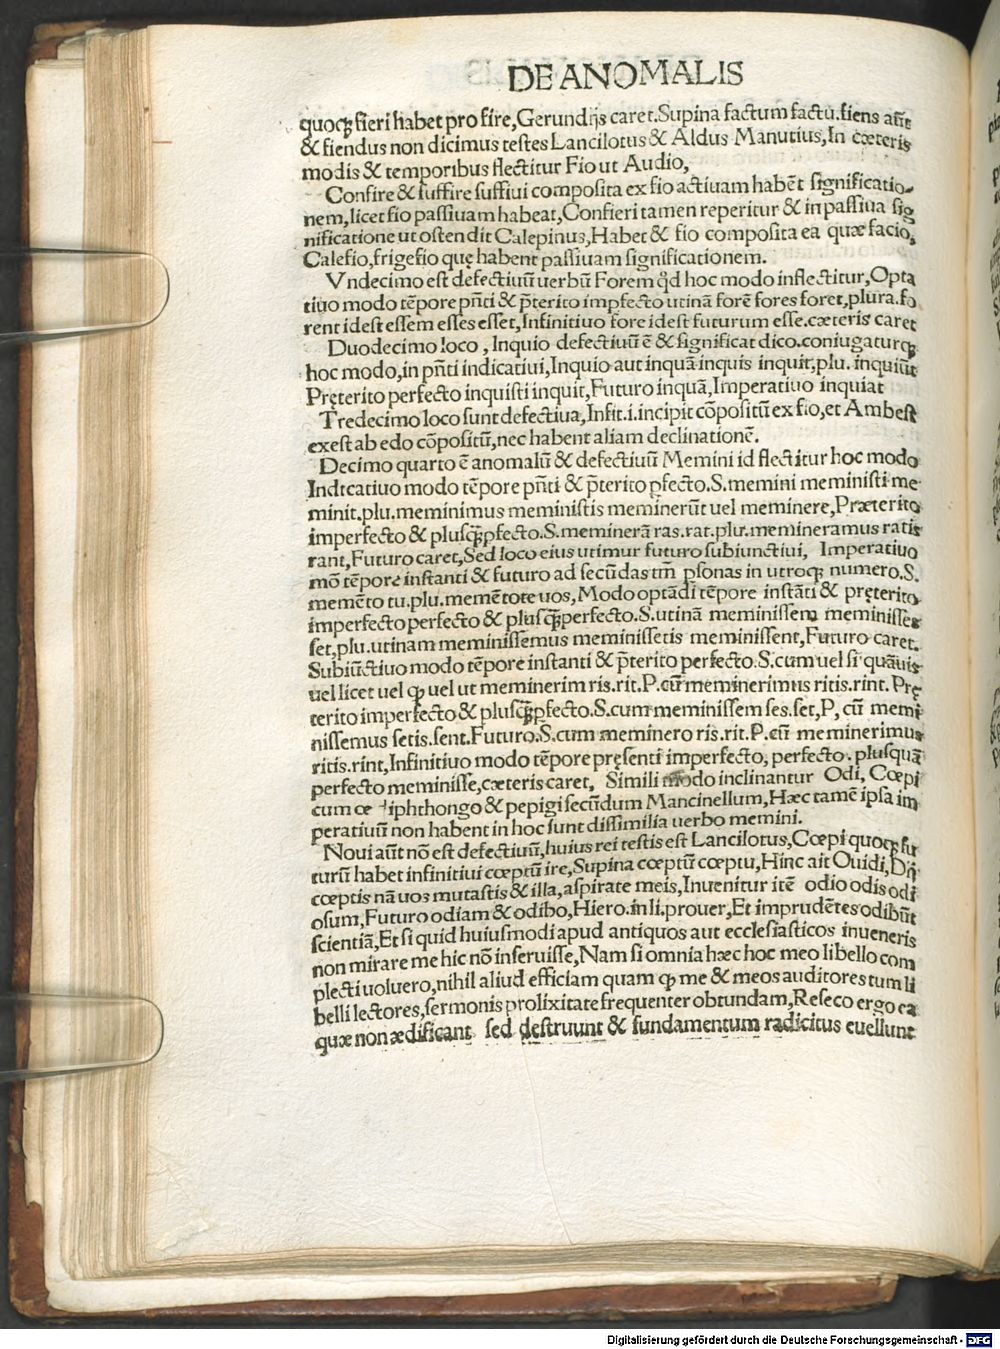 DE ANOMALIS
quoqꝫ fieri habet pro fire,Gerundijs caret.Supina factum factu.fiens aūt
& fiendus non dicimus testes Lancilotus & Aldus Manutius,In cæteris
modis & temporibus flectitur Fio ut Audio,
Confire & suffire suffiui composita ex fio actiuam habēt significatio-
nem,licet fio passiuam habeat,Confieri tamen reperitur & in passiua sig
nificatione ut ostendit Calepinus,Habet & fio composita ea quæ facio,
Calefio,frigefio quę habent passiuam significationem.
Vndecimo est defectiuū uerbū Forem qd̄ hoc modo inflectitur,Opta
tiuo modo tēpore pn̄ti & p̄terito impfecto utinā forē fores foret,plura.fo
rent idest essem esses esset,Infinitiuo fore idest futurum esse.cæteris caret
Duodecimo loco, Inquio defectiuū ē & significat dico.coniugaturqꝫ
hoc modo,in pn̄ti indicatiui,Inquio aut inquā inquis inquit,plu. inquiūt
Pręterito perfecto inquisti inquit,Futuro inquā,Imperatiuo inquiat
Tredecimo loco sunt defectiua,Infit.i.incipit cōpositū ex fio,et Ambest
exest ab edo cōpositū,nec habent aliam declinationē.
Decimo quarto ē anomalū & defectiuū Memini id flectitur hoc modo
Indicatiuo modo tēpore pn̄ti & p̄terito ꝑfecto.S.memini meministi me
minit.plu.meminimus meministis meminerūt uel meminere,Præterito
imperfecto & plusqꝫꝑfecto.S.meminerā ras.rat.plu.memineramus ratis
rant,Futuro caret,Sed loco eius utimur futuro subiunctiui, Imperatiuo
mō tēpore instanti & futuro ad secūdas tm̄ ꝑsonas in utroqꝫ numero.S.
memēto tu.plu.memētote uos,Modo optādi tēpore instāti & pręterito
imperfecto perfecto & plusqꝫperfecto.S.utinā meminissem meminisses
set,plu.utinam meminissemus meminissetis meminissent,Futuro caret.
Subiūctiuo modo tēpore instanti & p̄terito perfecto.S.cum uel si quāuis
uel licet uel qꝫ uel ut meminerim ris.rit.P.cū meminerimus ritis.rint. Prę
terito imperfecto & plusqꝫꝑfecto.S.cum meminissem ses.set,P, cū memi
nissemus setis.sent.Futuro.S.cum meminero ris.rit.P.cū meminerimus
ritis.rint,Infinitiuo modo tēpore pręsenti imperfecto, perfecto. plusquā
perfecto meminisse,cæteris caret, Simili modo inclinantur Odi, Cœpi
cum œ iphthongo & pepigi secūdum Mancinellum,Hæc tamē ipsa im
peratiuū non habent in hoc sunt dissimilia uerbo memini.
Noui aūt nō est defectiuū,huius rei testis est Lancilotus,Cœpi quoqꝫ fu
turū habet infinitiui cœptū ire,Supina cœptū cœptu,Hinc ait Ouidi,Dij
cœptis nā uos mutastis & illa,aspirate meis,Inuenitur itē odio odis odi
osum,Futuro odiam & odibo,Hiero.in li.prouer,Et imprudētes odibūt
scientiā,Et si quid huiusmodi apud antiquos aut ecclesiasticos inueneris
non mirare me hic nō inseruisse,Nam si omnia hæc hoc meo libello com
plecti uoluero,nihil aliud efficiam quam qꝫ me & meos auditores tum li
belli lectores,sermonis prolixitate frequenter obtundam,Reseco ergo ea
quæ non ædificant sed destruunt & fundamentum radicitus euellunt
Digitalisierung gefördert durch die Deutsche Forschungsgemeinschaft - DFG